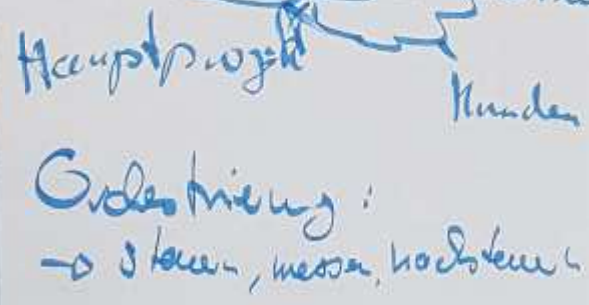 Hauptprojekt
Kunden
Orchestrierung:
→ Steuern, messen, nachsteuern